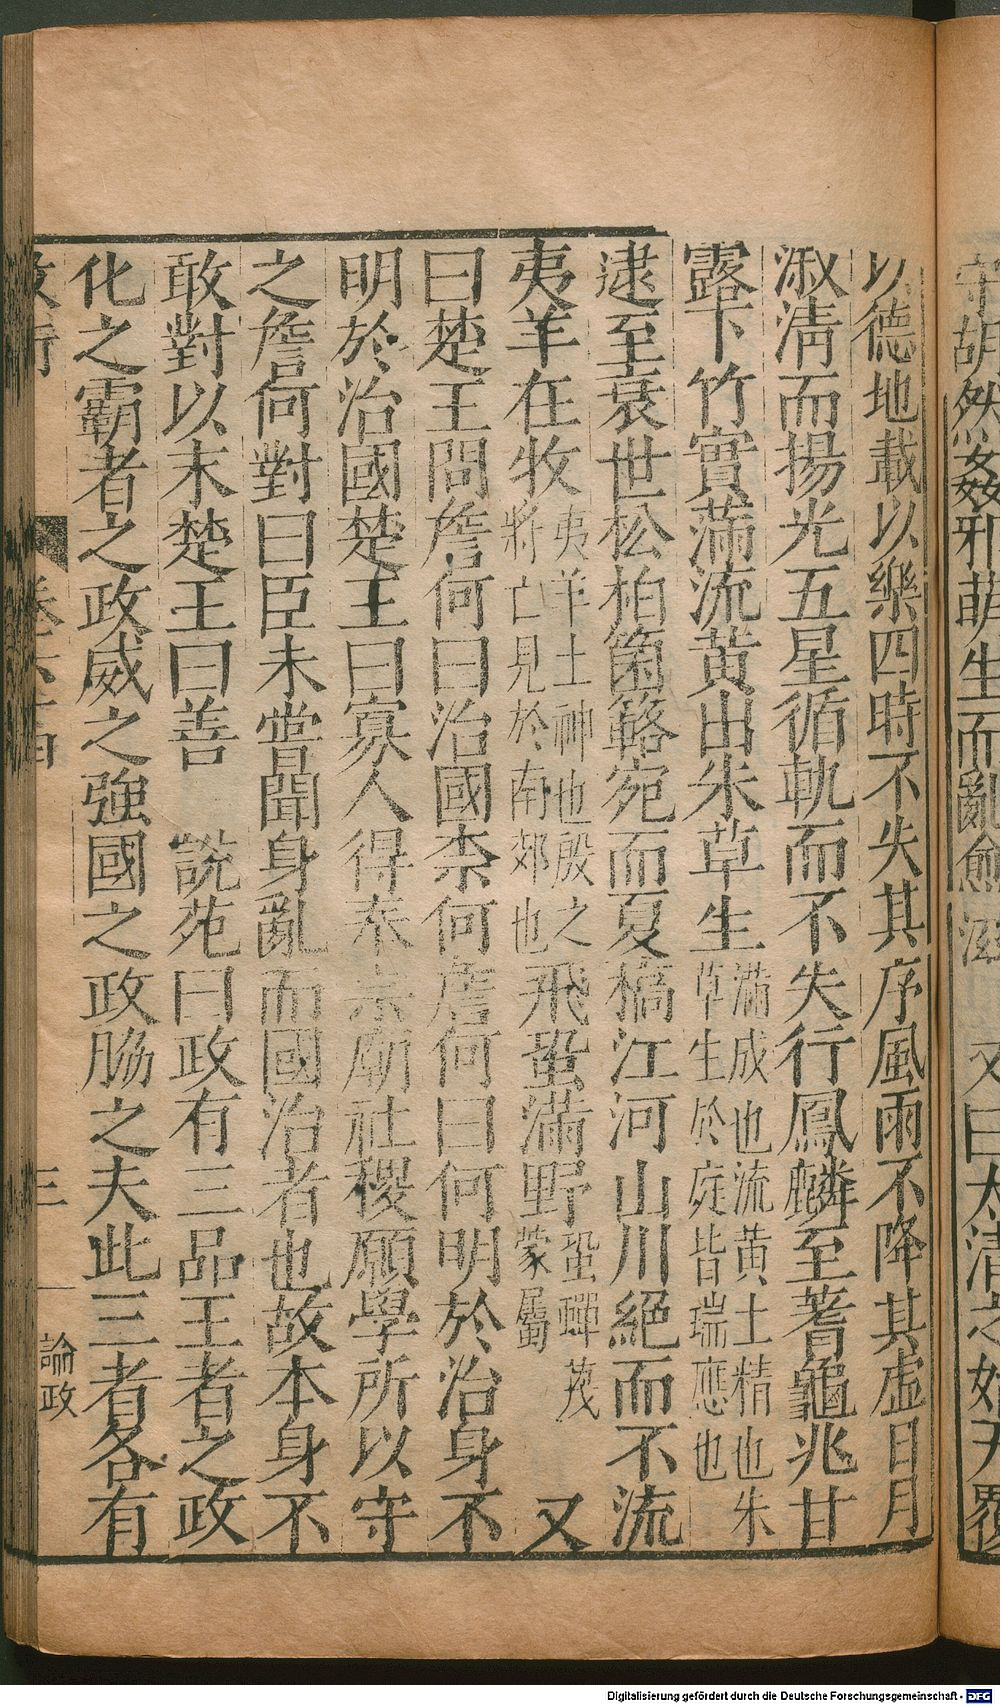 守胡然姦邪萌生而亂愈滋　又曰太清之始天覆
以德地載以樂四時不失其序風雨不降其虐日月
淑清而揚光五星循軌而不失行鳳麟至蓍龜兆甘
露下竹實滿流黃出朱草生滿成也流黃土精也朱草生於庭皆瑞應也
逮至衰世松柏箘簵宛而夏槁江河山川絕而不流
夷羊在牧夷羊土神也殷之將亡見於南郊也飛蛩滿野蛩蟬蠛蠓屬　又
曰楚王問詹何曰治國柰何詹何曰何明於治身不
明於治國楚王曰寡人得奉宗廟社稷願學所以守
之詹何對曰臣未嘗聞身亂而國治者也故本身不
敢對以末楚王曰善　說苑曰政有三品王者之政
化之霸者之政威之強國之政脇之夫此三者各有
三　論政
Digitalisierung gefördert durch die Deutsche Forschungsgemeinschaft - DFG